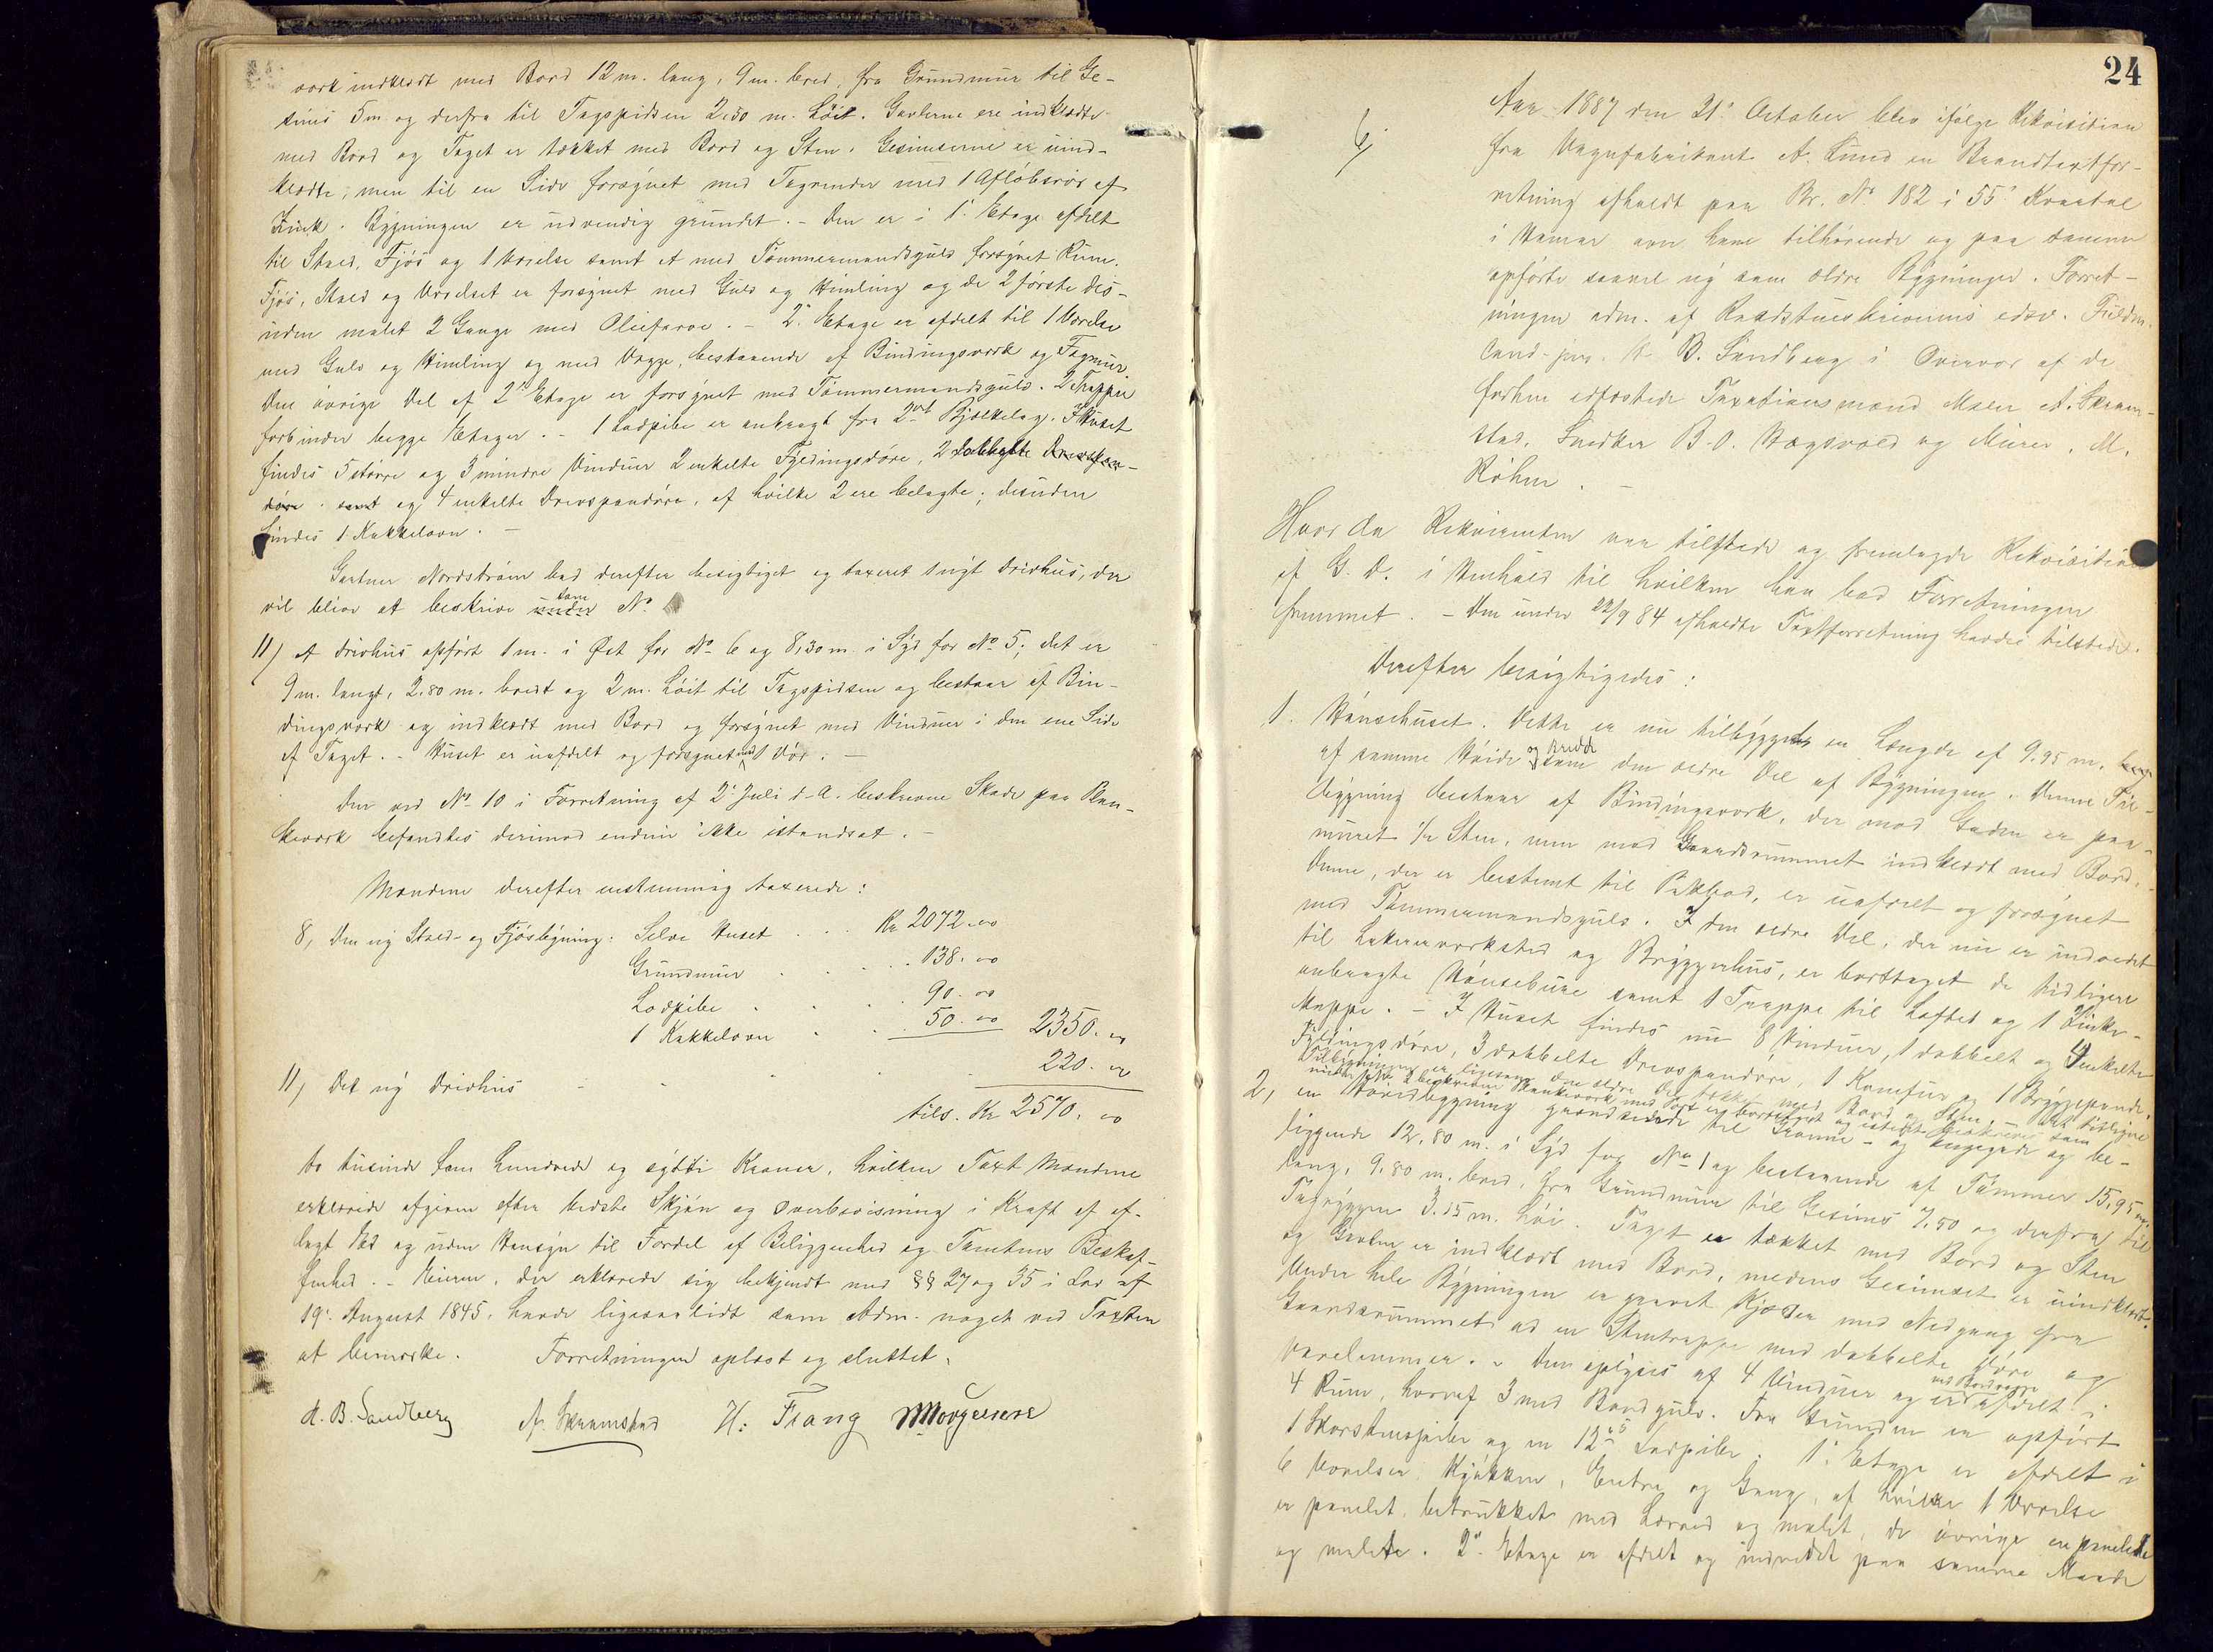 værk indklædt med Bord 12 m. lang, 9 m. bred, fra Grundmur til Ge-
sims 5 m og derfra til Tagspidsen 2,50 m. höit. Gavlerne ere indklædte
med Bord og Taget er tækket med Bord og Sten. Gesimserne er uind-
klædte; men til en Side forsÿnet med Tagrender med 1 Aflöbsrör af
Zink. Bÿgningen er udvendig grundet. – Den er i 1' Etage afdelt
til Stald, Fjös og 1 Værelse samt et med Tömmermandsgulv forsÿnet Rum.
Fjös, Stald og Værelset er forsÿnet med Gulv og Himling og de 2 förste des-
uden malet 2 Gange med Oliefarve. – 2' Etage er afdelt til 1 Værelse
med Gulv og Himling og med Vægge, bestaaende af Bindingsværk og Fagmur.
Den övrige Del af 2' Etage er forsÿnet med Tömmermandsgulv. 2 Trapper
forbinder begge Etager. – 1 Lodpibe er anbragt fra 2det Bjælkelag. I Huset
findes 5 större og 3 mindre Vinduer 2 enkelte Fÿldingsdöre, 2 dobbelte Drevspan-
döre. samt og 4 enkelte Drevspandöre, af hvilke 2 ere belagte; desuden
findes 1 Kakkelovn. –
Gartner Nordström bad derefter besigtiget og taxeret 1 nÿt Drivhus, der
vil blive at beskrive under som No
11) Et Drivhus opfört 1 m. i Öst for No 6 og 8,30 m. i Sÿd for No 5; det er
9 m. langt, 2.80 m. bredt og 2 m. höit til Tagspidsen og bestaar af Bin-
dingsværk og indklædt med Bord og forsÿnet med Vinduer i den ene Side
af Taget. – Huset er uafdelt og forsÿnet med 1 Dör. –
Den ved No 10 i Forretning af 2' Juli d. A. beskrevne Skade paa Plan-
keværk befandtes derimod endnu ikke istandsat. –
Mændene derefter enstemmig taxerede:
8, Den nÿ Stald- og Fjösbÿgning: Selve Huset . . . Kr 2072.00
Grundmur . . . . 138.00
Lodpibe . . . . 90.00
1 Kakkelovn . . . 50.00 2350.00
11, Det nÿ Drivhus - - - - 220.00
tils. Kr 2570.00
to tusinde fem hundrede og sÿtti Kroner, hvilken Taxt Mændene
erklærede afgiven efter bedste Skjön og Overbevisning i Kraft af af-
lagt Ed og uden Hensÿn til Fordel af Beliggenhed og Tomtens Beskaf-
fenhed. – Eieren, der erklærede sig bekjendt med §§ 27 og 35 i Lov af
19' August 1845, havde ligesaalidt som Adm. noget ved Taxten
at bemærke. Forretningen oplæst og sluttet.
A. B. Sandberg A. Skramstad H: Frang
24
6/
Aar 1887 den 21' October blev ifölge Rekvisition
fra Vognfabrikant A. Lund en Brandtaxtfor-
retning afholdt paa Br. No 182 i 55' Kvartal
i Hamar over ham tilhörende og paa samme
opförte saavel nÿ som ældre Bÿgninger. Forret-
ningen adm. af Raadstueskriverens edsv. Fuldm.
Cand. jur. A. B. Sandberg i Overvær af de
forhen edfæstede Taxationsmænd Maler A. Skram-
stad, Snedker B. O. Hagsvold og Murer, M.
Röhne. –
Hvorda Rekvirenten var tilstede og fremlagde Rekvisition
af G. D. i Henhold til hvilken han bad Forretningen
fremmet. – Den under 22/9 84 afholdte Taxtforretning havdes tilstede.
Derefter besigtigedes:
1. Hönsehuset. Dette er nu tilbÿgget en Længde af 9.95 m.
af samme Höide og Bredde som den ældre Del af Bÿgningen. Denne Til-
bÿgning bestaar af Bindingsværk, der mod Gaden er paa-
muret 1/2 Sten, men mod Gaardsrummet indklædt med Bord.
Denne, der er bestemt til Pakbod, er uafdelt og forsÿnet
med Tömmermandsgulv. I den ældre Del, der nu er indredet
til Lakererværksted og Brÿggerhus, er borttaget de tidligere
anbragte Hönsebure samt 1 Trappe til Loftet og 1 Vinke-
trappe. – I Huset findes nu 8 Vinduer, 1 dobbelt og 1 enkelte
Fÿldingsdöre, 3 dobbelte Drevspandöre, 1 Komfur og 1 Brÿggepande.
Tilbÿgningen er ligesom den ældre Del tækket med Bord og Sten. – Det tidligere
under No 2 beskrevne Plankeværk med Port er borttaget og istedet beskrives som
2, en Vöaningsbÿgning grændsende til Grönne- og Enggade og be-
liggende 12.80 m. i Sÿd for No 1 og bestaaende af Tömmer 15,95 m.
lang, 9.80 m. bred, fra Grundmur til Gesims 7.50 og derfra til
Tagrÿggen 3.15 m. höi. Taget er tækket med Bord og Sten
og Gavlen er indklædt med Bord, medens Gesimset er uindklædt.
Under hele Bÿgningen er gravet Kjælder med Nedgang fra
Gaardsrummet ad en Stentrappe med dobbelte Döre og
Den oplÿses af 4 Vinduer og er ved Bordvægge afdelt i
4 Rum, hvoraf 3 med Bordgulv. Fra Grunden er opfört
1 Skorstenspibe og en 12" Lodpibe. 1' Etage er afdelt i
6 Værelser, Kjökken, Entre og Gang, af hvilke 1 Værelse
er panelet, betrukket med Lærred og malet, de övrige ere panelede
og malede. 2' Etage er afdelt og indredet paa samme Maade